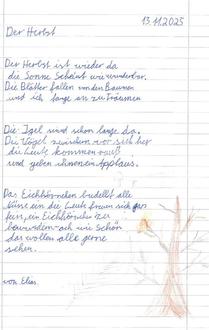 13.11.2025
Der Herbst
Der Herbst ist wieder da
die Sonne Scheint wie wunderbar.
Die Blätter fallen von den Bäumen
und ich fange an zu Träumen
Die Igel sind schon lange da.
Die Vögel zwitschern vor sich her
die Leute kommen
und geben ihnen ein Applaus.
Das Eichhörnchen buddelt alle
Nüse ein die Leute freuen sich
ein Eichhörnchen zu
bewundern ach wie Schön
das wollen alle gerne
sehen.
von Elias.